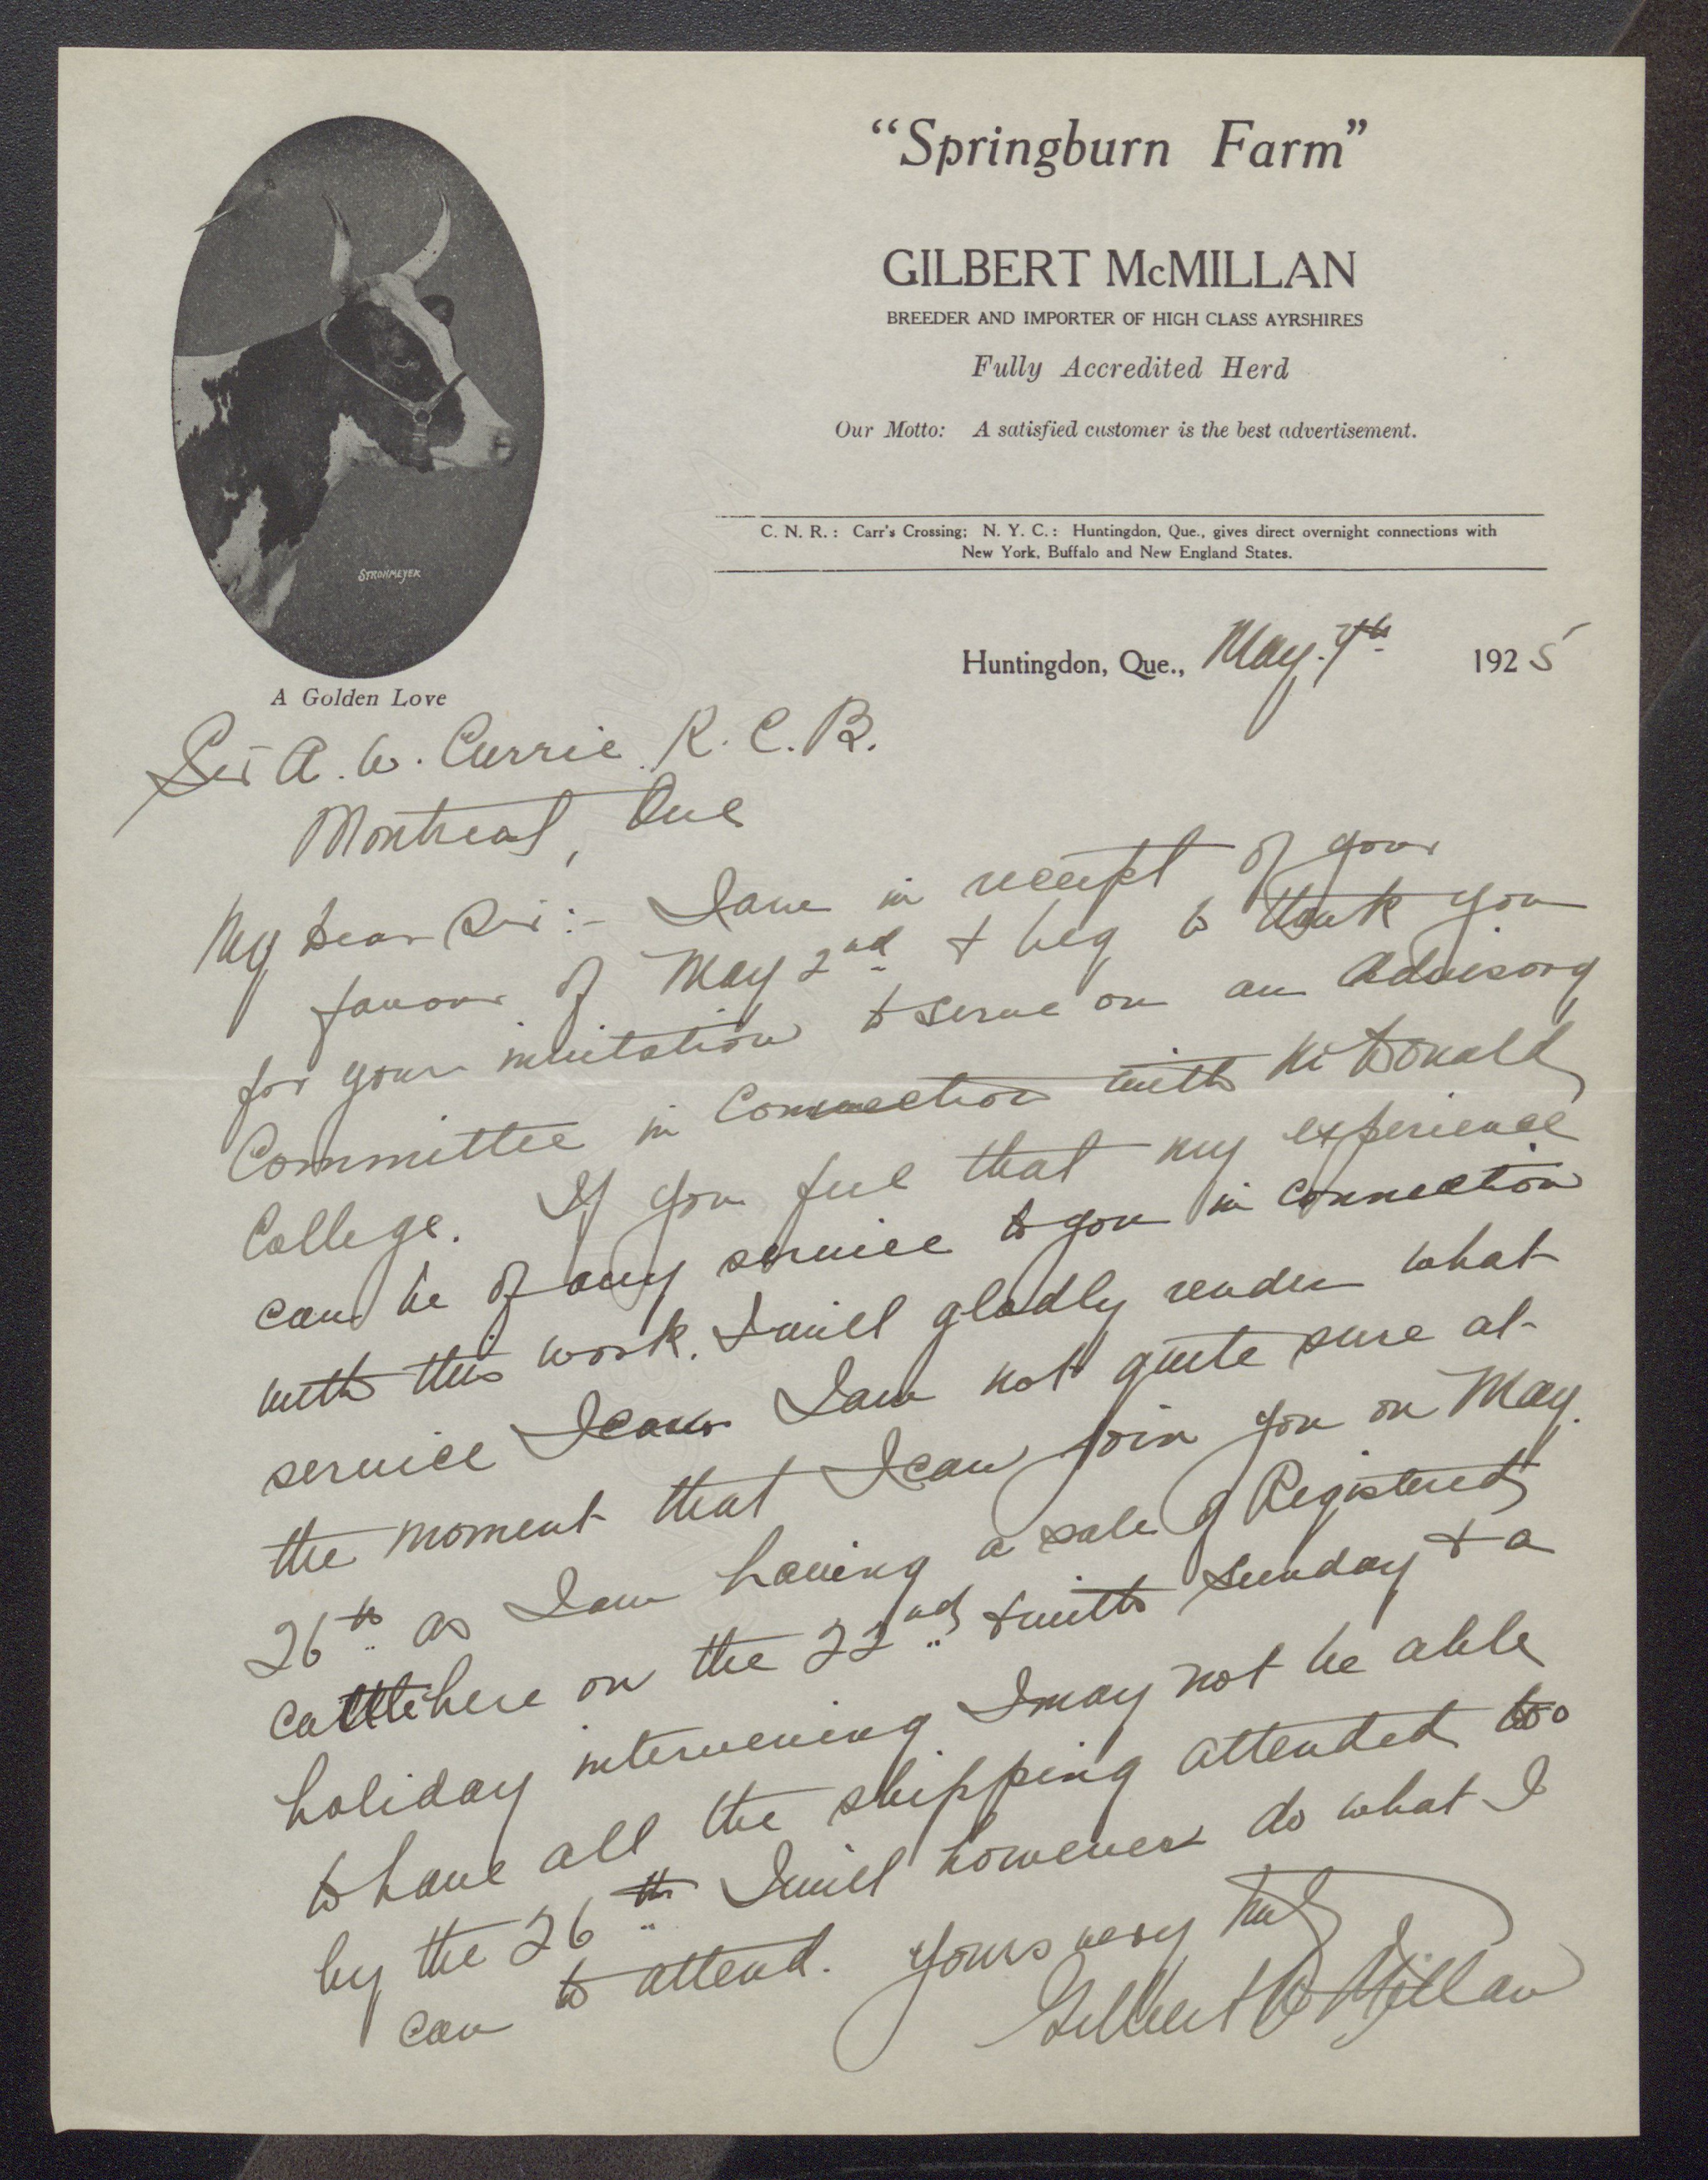 "Springburn Farm"
GILBERT McMILLAN
BREEDER AND IMPORTER OF HIGH CLASS AYRSHIRES
Fully Accredited Herd
Our Motto: A satisfied customer is the best advertisement.
C. N. R.: Carr's Crossing; N. Y. C.: Huntingdon, Que., gives direct overnight connections with
New York, Buffalo and New England States.
STROHMEYER
A Golden Love
Huntingdon, Que., May. 7th 1925
Sir A. W. Currie. K. C. B.
Montreal, Que
My Dear Sir:- I am in receipt of your
favour of May 2nd & beg to thank you
for your invitation to serve on an Advisory
Committee in Connection with McDonald
College. If you feel that my experience
can be of any service to you in connection
with this work. I will gladly render what
service I can. I am not quite sure at-
the moment that I can join you on May.
26th as I am having a sale of Registered
cattle here on the 22nd & with Sunday & a
holiday intervening I may not be able
to have all the shipping attended too
by the 26th I will however do what I
can to attend. Yours very truly
Gilbert McMillan